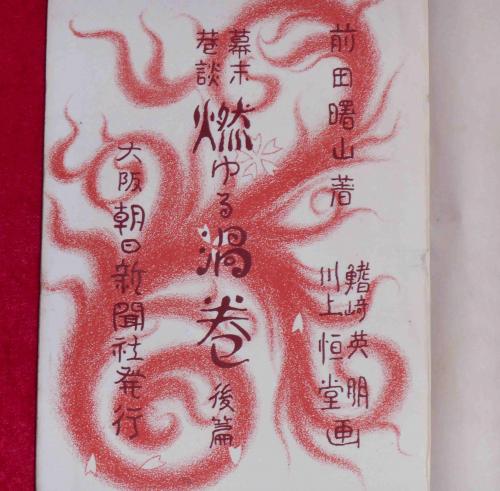 前田曙山著
鰭崎英朋
川上恒堂画
幕末
巷談
燃ゆる渦巻
後篇
大阪朝日新聞社発行